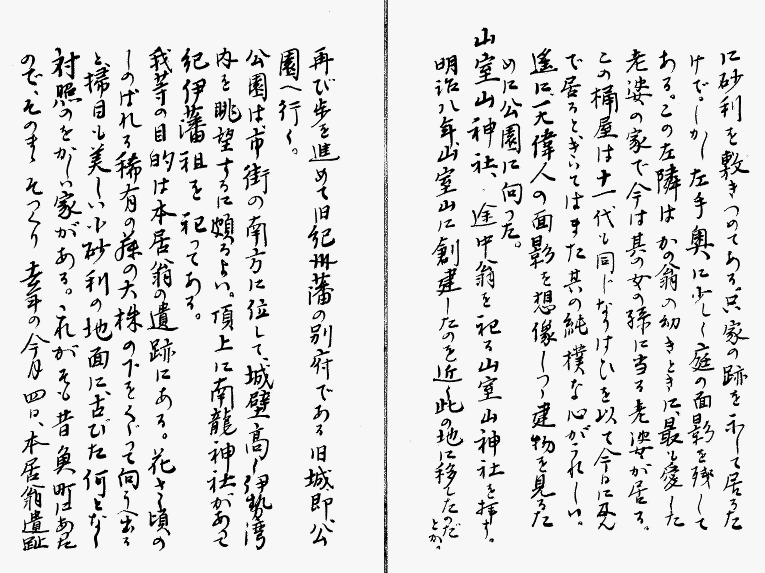 に砂利を敷きつめてある。只家の跡を示して居るだ
けで、しかし左手奥に少しく庭の面影を残して
ある。この左隣はかの翁の幼きときに、最も愛した
老婆の家で今は其の女の孫に当る老婆が居る。
この桶屋は十一代も同じなりはひを以て今日に及ん
で居ると、きいてはまた其の純樸な心がうれしい。
遙に一大偉人の面影を想像しつつ建物を見るた
めに公園に向った。
山室山神社、途中翁を祀る山室山神社を拝す。
明治八年、山室山に創建したのを近く此の地に移したのだ
とか。
再び歩を進めて旧紀州藩の別府である旧城即、公
園へ行く。
公園は市街の南方に位して、城壁高し伊勢湾
内を眺望するに頗るよい。頂上に南龍神社があって
紀伊藩祖を祀ってある。
我等の目的は本居翁の遺跡にある。花さく頃の
しのばれる稀有の藤の大株の下をくぐって向うへ出る
と、掃目も美しい小砂利の地面に、古びた何となく
対照のをかしい家がある。これがそも昔魚町にあった
のを、そのまゝそっくり 去年の今月四日、本居翁遺趾